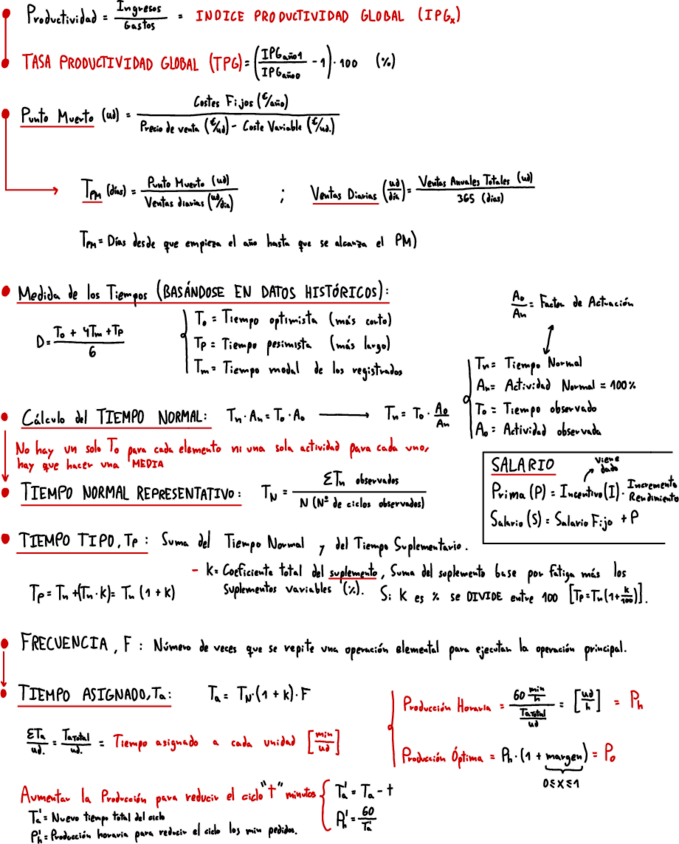 Productividad = Ingresos / Gastos = INDICE PRODUCTIVIDAD GLOBAL (IPGx)
TASA PRODUCTIVIDAD GLOBAL (TPG) = (IPGaño1 / IPGaño0 - 1) · 100 (%)
Punto Muerto (ud) = Costes Fijos (€/año) / Precio de venta (€/ud) - Coste Variable (€/ud.)
TPM (días) = Punto Muerto (ud) / Ventas diarias (ud/día) ; Ventas Diarias (ud/día) = Ventas Anuales Totales (ud) / 365 (días)
TPM = Días desde que empieza el año hasta que se alcanza el PM)
Medida de los Tiempos (BASÁNDOSE EN DATOS HISTÓRICOS):
D = To + 4Tm + Tp / 6
To = Tiempo optimista (más corto)
Tp = Tiempo pesimista (más largo)
Tm = Tiempo modal de los registrados
Ao / An = Factor de Actuación
Tn = Tiempo Normal
An = Actividad Normal = 100%
To = Tiempo observado
Ao = Actividad observada
Cálculo del TIEMPO NORMAL: Tn · An = To · Ao → Tn = To · Ao / An
No hay un solo To para cada elemento ni una sola actividad para cada uno,
hay que hacer una MEDIA
TIEMPO NORMAL REPRESENTATIVO: TN = ΣTn observados / N (Nº de ciclos observados)
SALARIO
viene dado
Prima (P) = Incentivo (I) · Incremento Rendimiento
Salario (S) = Salario Fijo + P
TIEMPO TIPO, Tp: Suma del Tiempo Normal y del Tiempo Suplementario.
Tp = Tn + (Tn · k) = Tn (1 + k)
- k = Coeficiente total del suplemento, Suma del suplemento base por fatiga más los
Suplementos variables (%). Si K es % se DIVIDE entre 100 [Tp = Tn (1 + k/100)].
FRECUENCIA, F: Número de veces que se repite una operación elemental para ejecutar la operación principal.
TIEMPO ASIGNADO, Ta: Ta = TN · (1 + k) · F
ΣTa / ud. = Tatotal / ud. = Tiempo asignado a cada unidad [min/ud]
Producción Horaria = 60 min/h / Tatotal/ud = [ud/h] = Ph
Producción Óptima = Ph · (1 + margen) = Po
0≤x≤1
Aumentar la Producción para reducir el ciclo "t" minutos { Ta' = Ta - t
Ph' = 60 / Ta'
Ta' = Nuevo tiempo total del ciclo
Ph' = Producción horaria para reducir el ciclo los min pedidos.